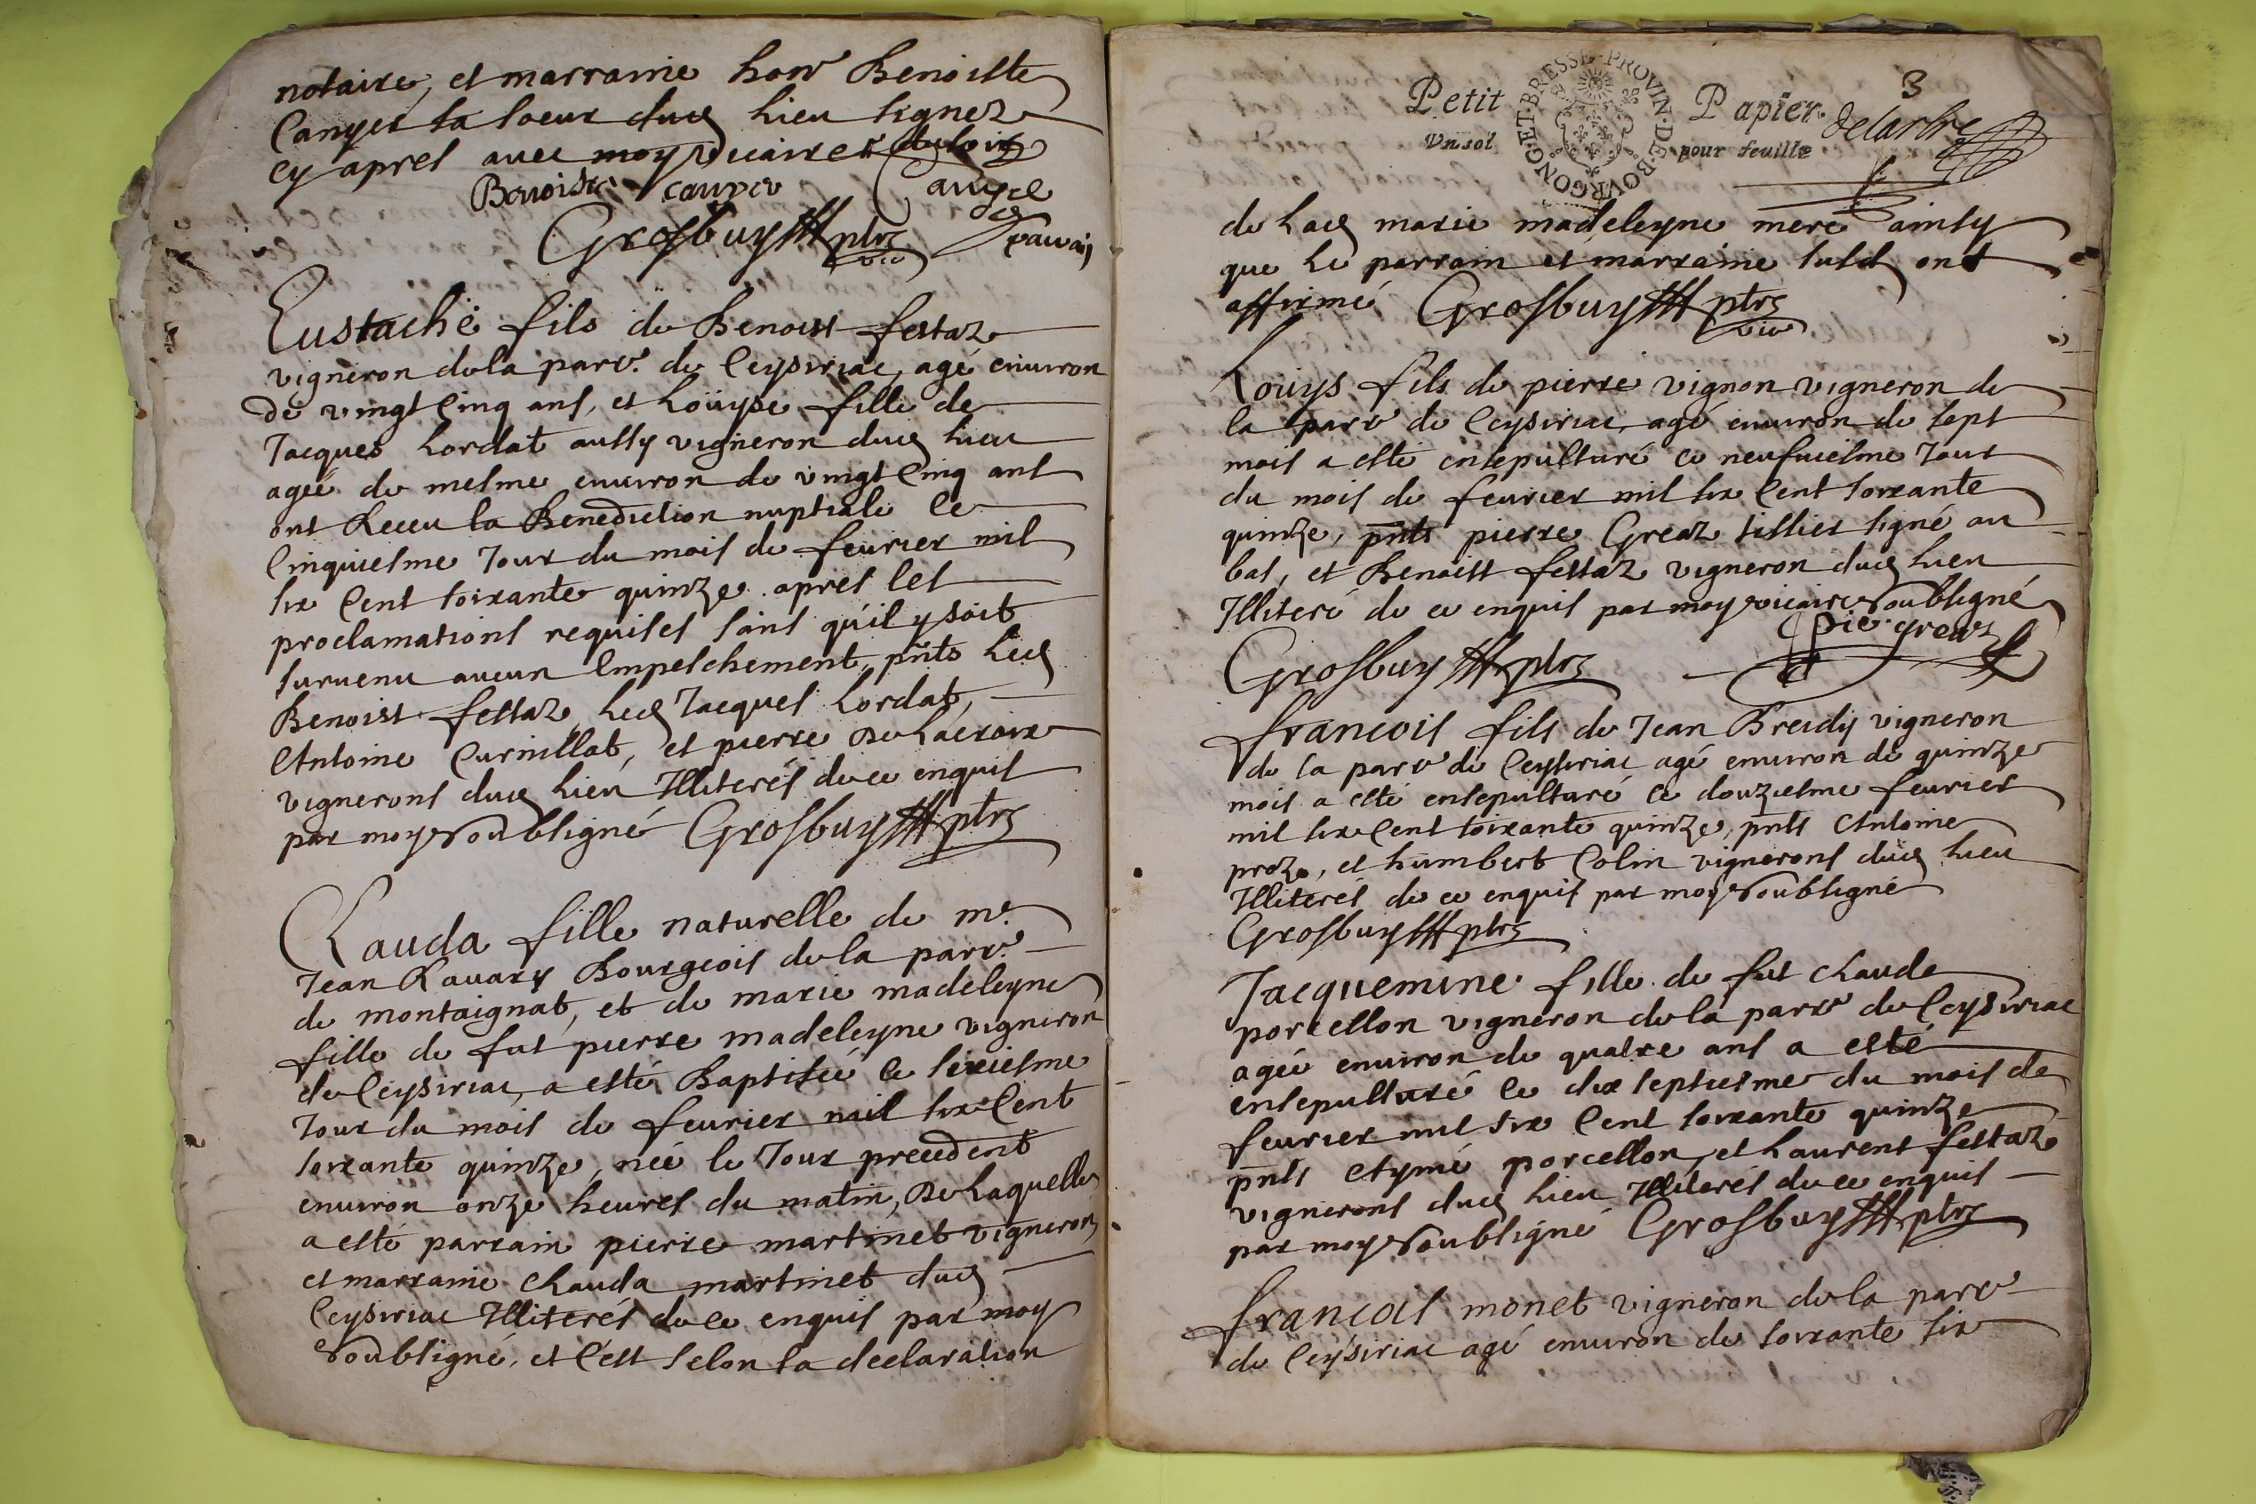 notaire, et marraine hon^e Benoiste
Canyer sa soeur dud lieu signez
cy apres avec moy vicaire
Benoiste canyer Canyer
Grosbuy ptre
vic
Eustache fils de Benoist festaz
vigneron de la parr^e de Ceysiriac, agé environ
de vingt cinq ans, et Loüyse fille de
Jacques Lordat aussy vigneron dud lieu
agée de mesme environ de vingt cinq ans
ont Receu la Benediction nuptiale le
cinquiesme Jour du mois de fevrier mil
six cent soixante quinze apres les
proclamations requises sans qu'il y soit
survenu aucun Empeschement, pnts led
Benoist festaz, led Jacques Lordat,
Antoine Curnillat, et pierre De Lacroix
vignerons dud lieu Illiterés de ce enquis
par moy Soubsigné Grosbuy ptre
Clauda fille naturelle de m^e
Jean Ravary Bourgeois de la parr^e
de montaignat, et de marie madeleyne
fille de fut pierre madeleyne vigneron
de Ceysiriac, a esté Baptisée le sixiesme
Jour du mois de fevrier mil six cent
soixante quinze, née le Jour precedent
environ onze heures du matin, De Laquelle
a esté parrain pierre martinet vigneron
et marraine Clauda martinet dud
Ceysiriac Illiterés de ce enquis par moy
Soubsigné, et c'est selon la declaration
3
Petit Papier delarbre
Un sol pour feuille
BOVRGONG·ET·BRESSE·PROVIN·DE·
de Lad marie madeleyne mere ainsy
que le parrain et marraine susd ont
affirmé Grosbuy ptre
vic
Loüys fils de pierre vignon vigneron de
la parr^e de Ceysiriac, agé environ de sept
mois a esté ensepulturé ce neufviesme Jour
du mois de fevrier mil six cent soixante
quinze, pnts pierre Greaz tissier signé au
bas, et Benoist festaz vigneron dud lieu
Illiteré de ce enquis par moy vicaire Soubsigné
pie. greaz
Grosbuy ptre
francois fils de Jean Breidy vigneron
de la parr^e de Ceysiriac agé environ de quinze
mois a esté ensepulturé ce douziesme fevrier
mil six cent soixante quinze, pnts Antoine
proz, et humbert Colin vignerons dud lieu
Illiterés de ce enquis par moy Soubsigné
Grosbuy ptre
Jacquemine fille de fut claude
porcellon vigneron de la parr^e de Ceysiriac
agée environ de quatre ans a esté
ensepulturé le dix septiesme du mois de
fevrier mil six cent soixante quinze
pnts Aymé porcellon, et Laurent festaz
vignerons dud lieu Illiterés de ce enquis
par moy Soubsigné Grosbuy ptre
francois monet vigneron de la parr^e
de Ceysiriac agé environ de soixante six